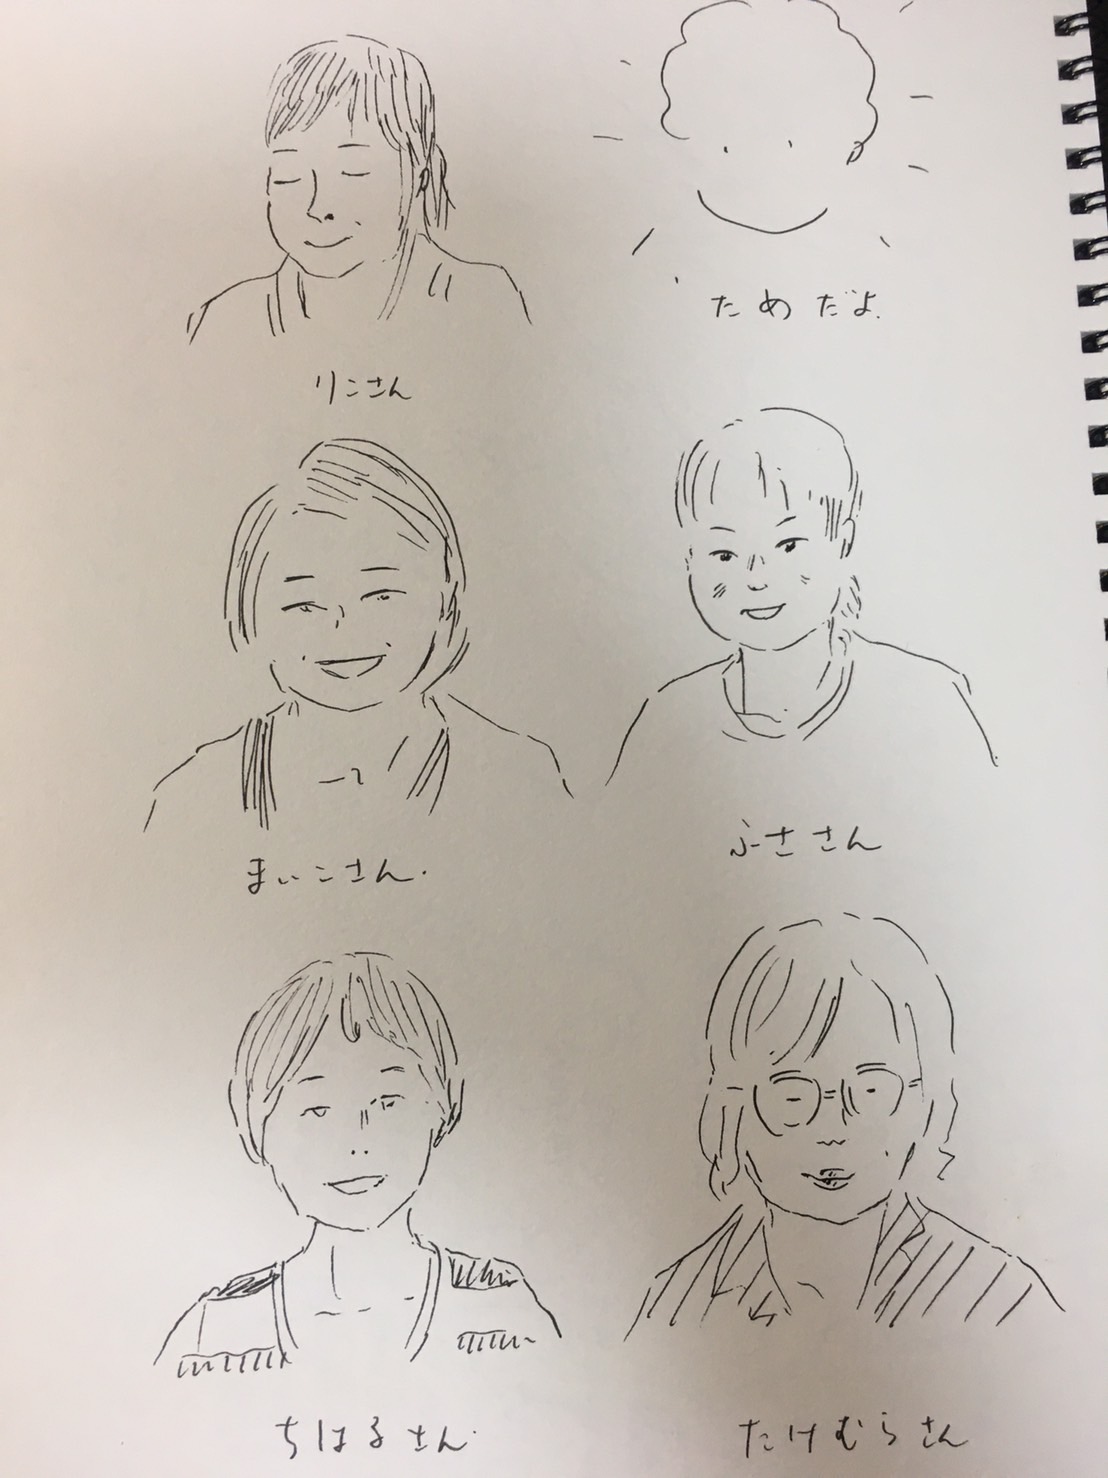 りこさん
ためだよ.
まいこさん.
ふささん
ちはるさん.
たけむらさん